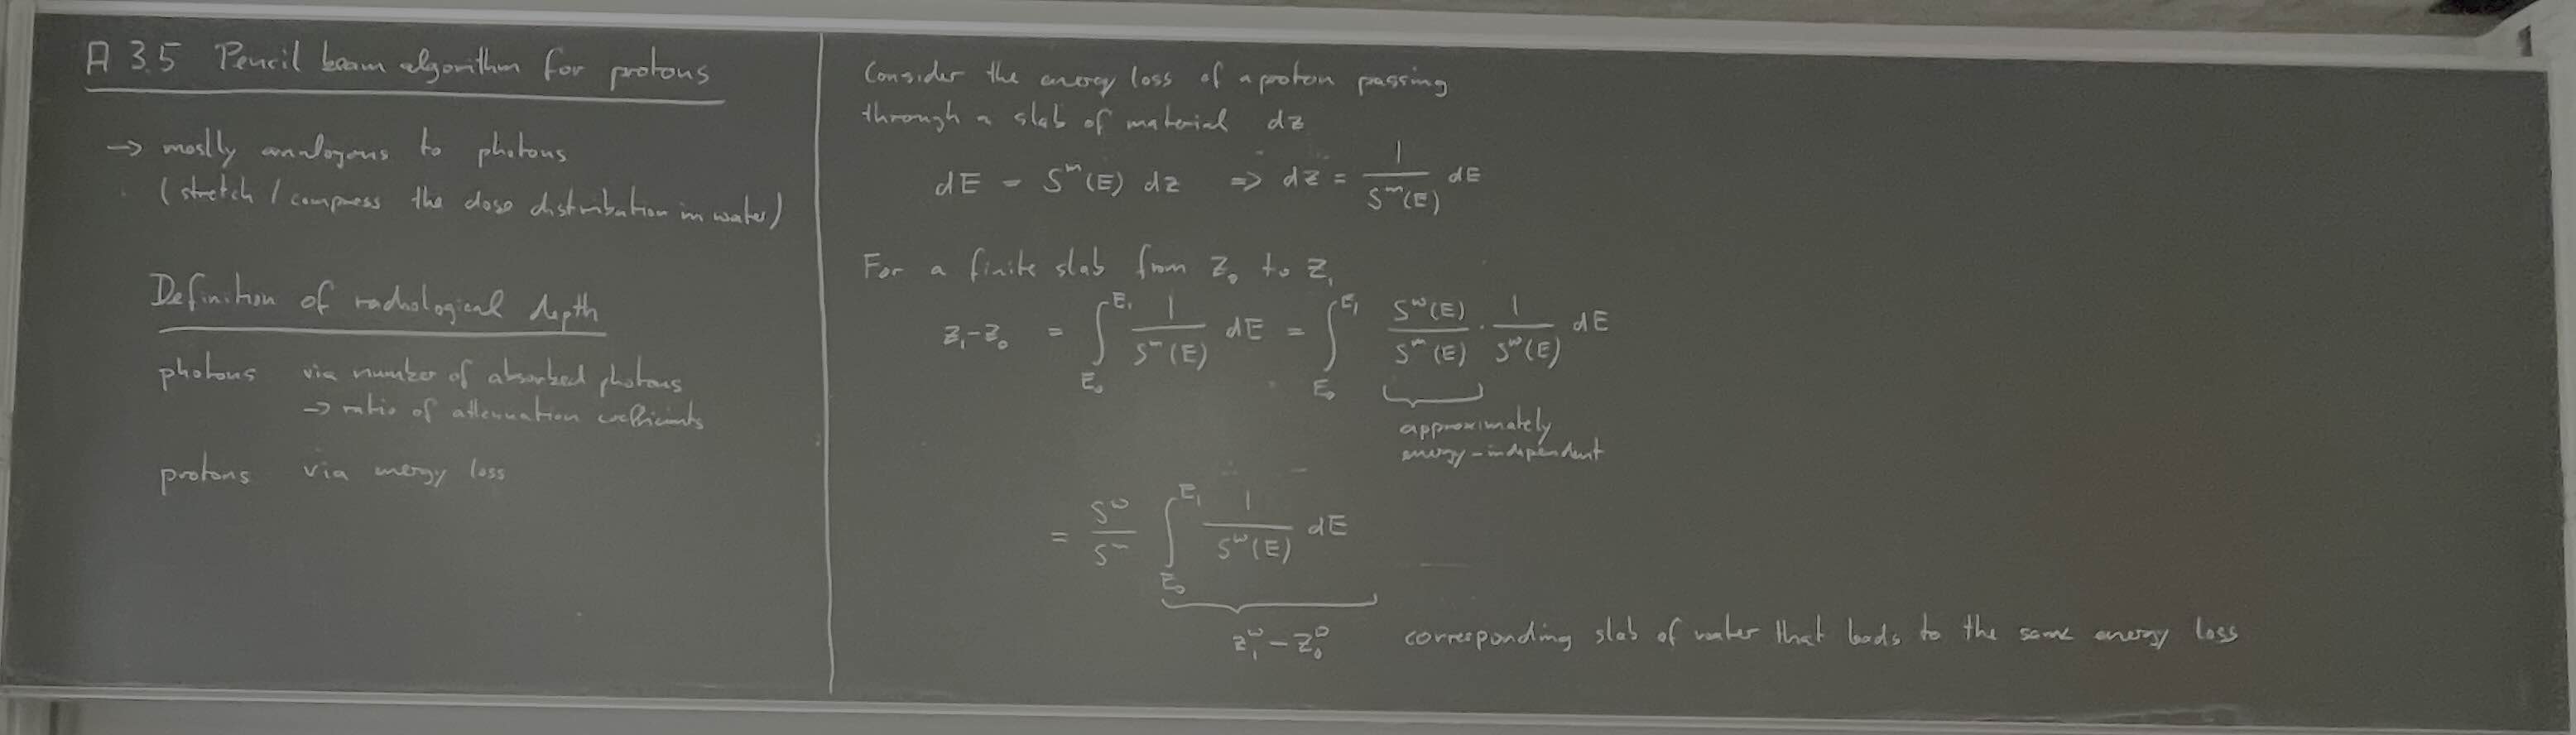 A 3.5 Pencil beam algorithm for protons
→ mostly analogous to photons
(stretch / compress the dose distribution in water)
Definition of radiological depth
photons via number of absorbed photons
→ ratio of attenuation coefficients
protons via energy loss
Consider the energy loss of a proton passing
through a slab of material dz
dE = S^m(E) dz ⇒ dz = 1/S^m(E) dE
For a finite slab from z₀ to z₁
z₁-z₀ = ∫_{E₀}^{E₁} 1/S^m(E) dE = ∫_{E₀}^{E₁} S^w(E)/S^m(E) · 1/S^w(E) dE
approximately
energy-independent
= S^w/S^m ∫_{E₀}^{E₁} 1/S^w(E) dE
z₁^w - z₀^w corresponding slab of water that leads to the same energy loss